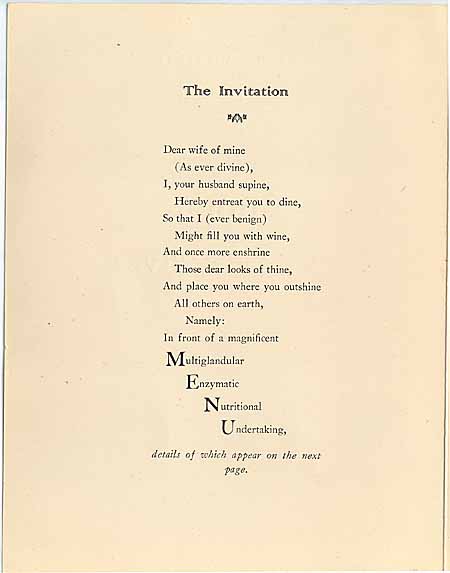 The Invitation
Dear wife of mine
(As ever divine),
I, your husband supine,
Hereby entreat you to dine,
So that I (ever benign)
Might fill you with wine,
And once more enshrine
Those dear looks of thine,
And place you where you outshine
All others on earth,
Namely:
In front of a magnificent
Multiglandular
Enzymatic
Nutritional
Undertaking,
details of which appear on the next
page.